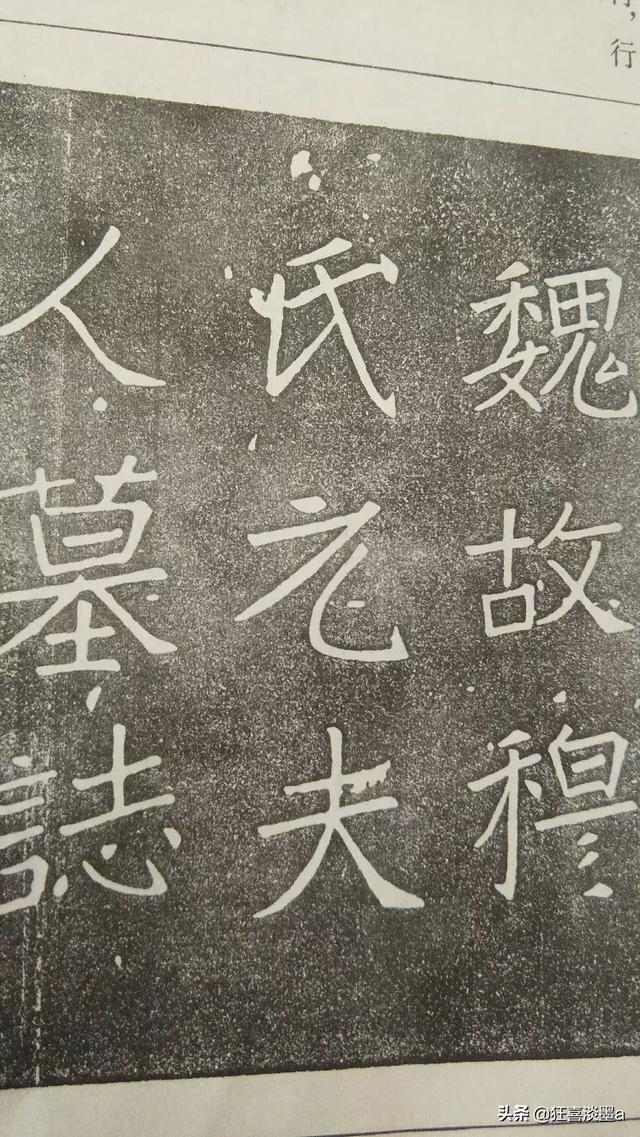 行，
行
魏故穆
氏元夫
人墓誌
头条 @狂喜淡墨a